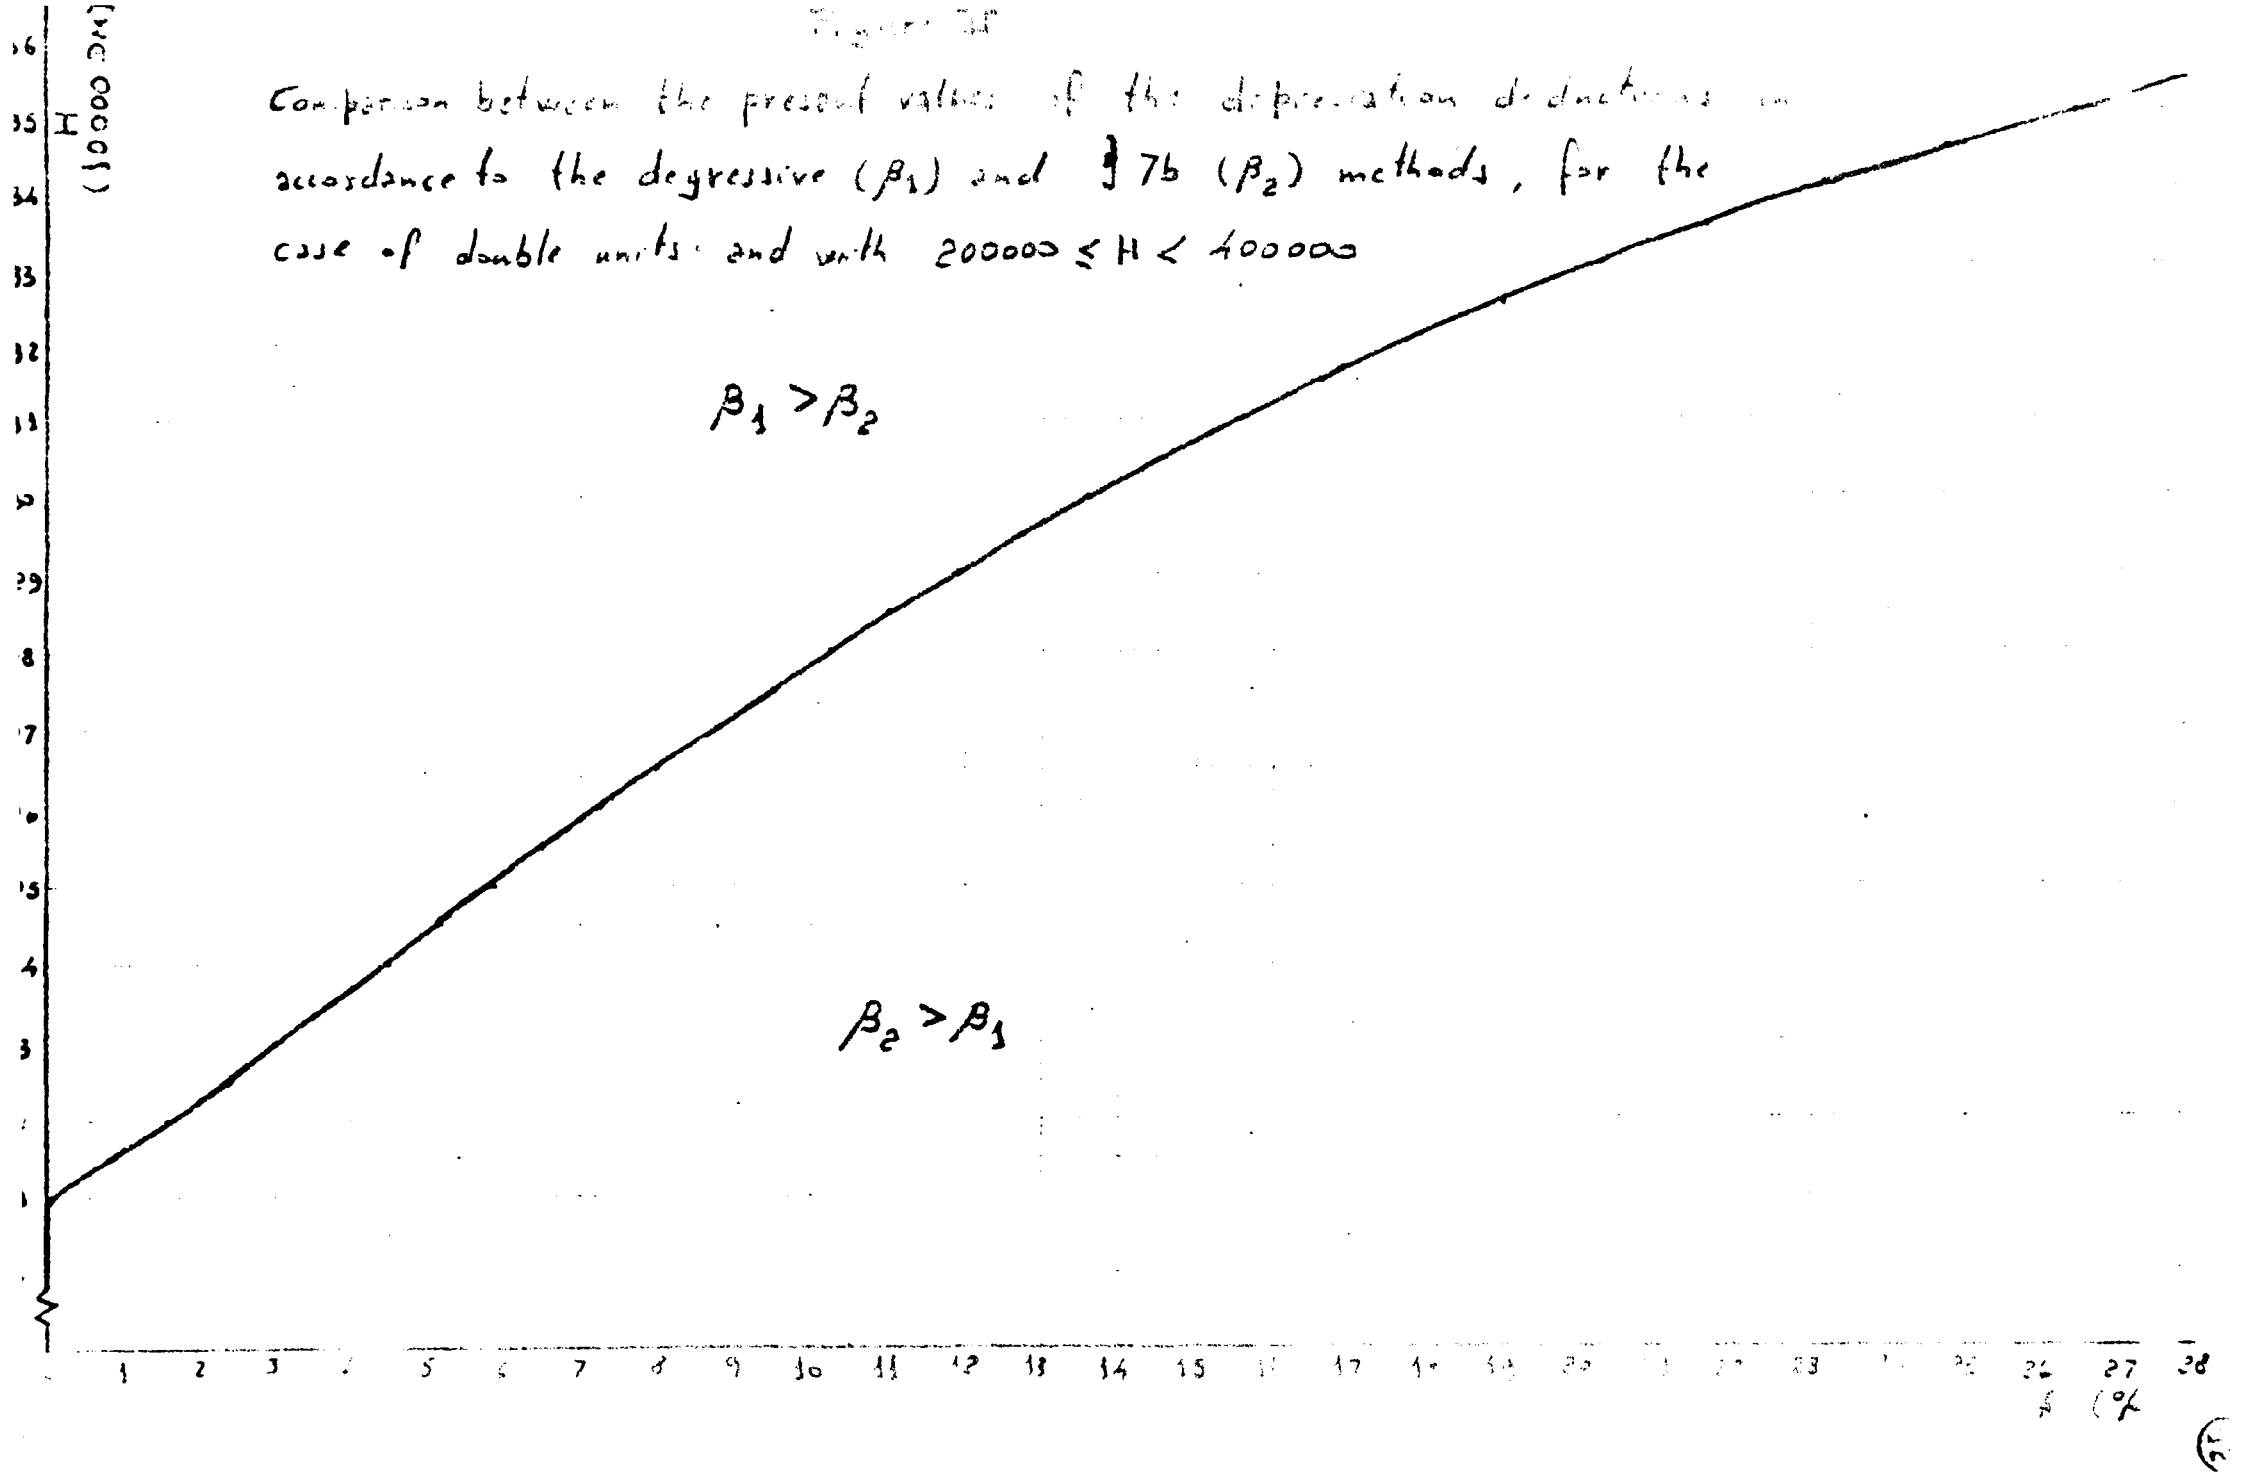 Figure
Comparison between the present values of the depreciation deductions in
accordance to the degressive (β1) and § 7b (β2) methods, for the
case of double units and with 200000 ≤ H < 400000
H
(10000 DM)
36
35
34
33
32
31
β1 > β2
29
8
7
5
4
3
β2 > β1
1 2 3 5 6 7 8 9 10 11 12 13 14 15 17 19 20 23 26 27 28
(%